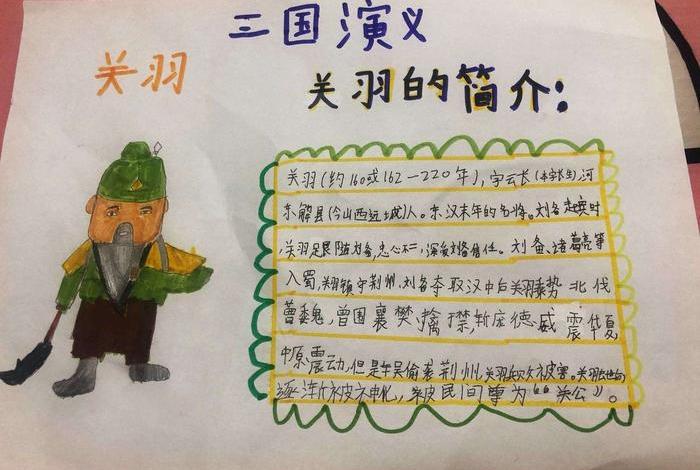 三国演义
关羽
关羽的简介:
关羽(约160或162一220年),字云长(本字长生)河
东解县(今山西运城)人。东汉末年的名将。刘备起兵时
,关羽足跟随刘备,忠心不二,深受刘备信任。刘备、诸葛亮等
入蜀,关羽镇守荆州,刘备夺取汉中后关羽乘势北伐
曹魏,曾围襄樊、擒于禁,斩庞德、威震华夏
中原震动,但是东吴偷袭荆州,关羽兵败被害。关羽去世后
逐渐被神化,被民间尊为“关公”。